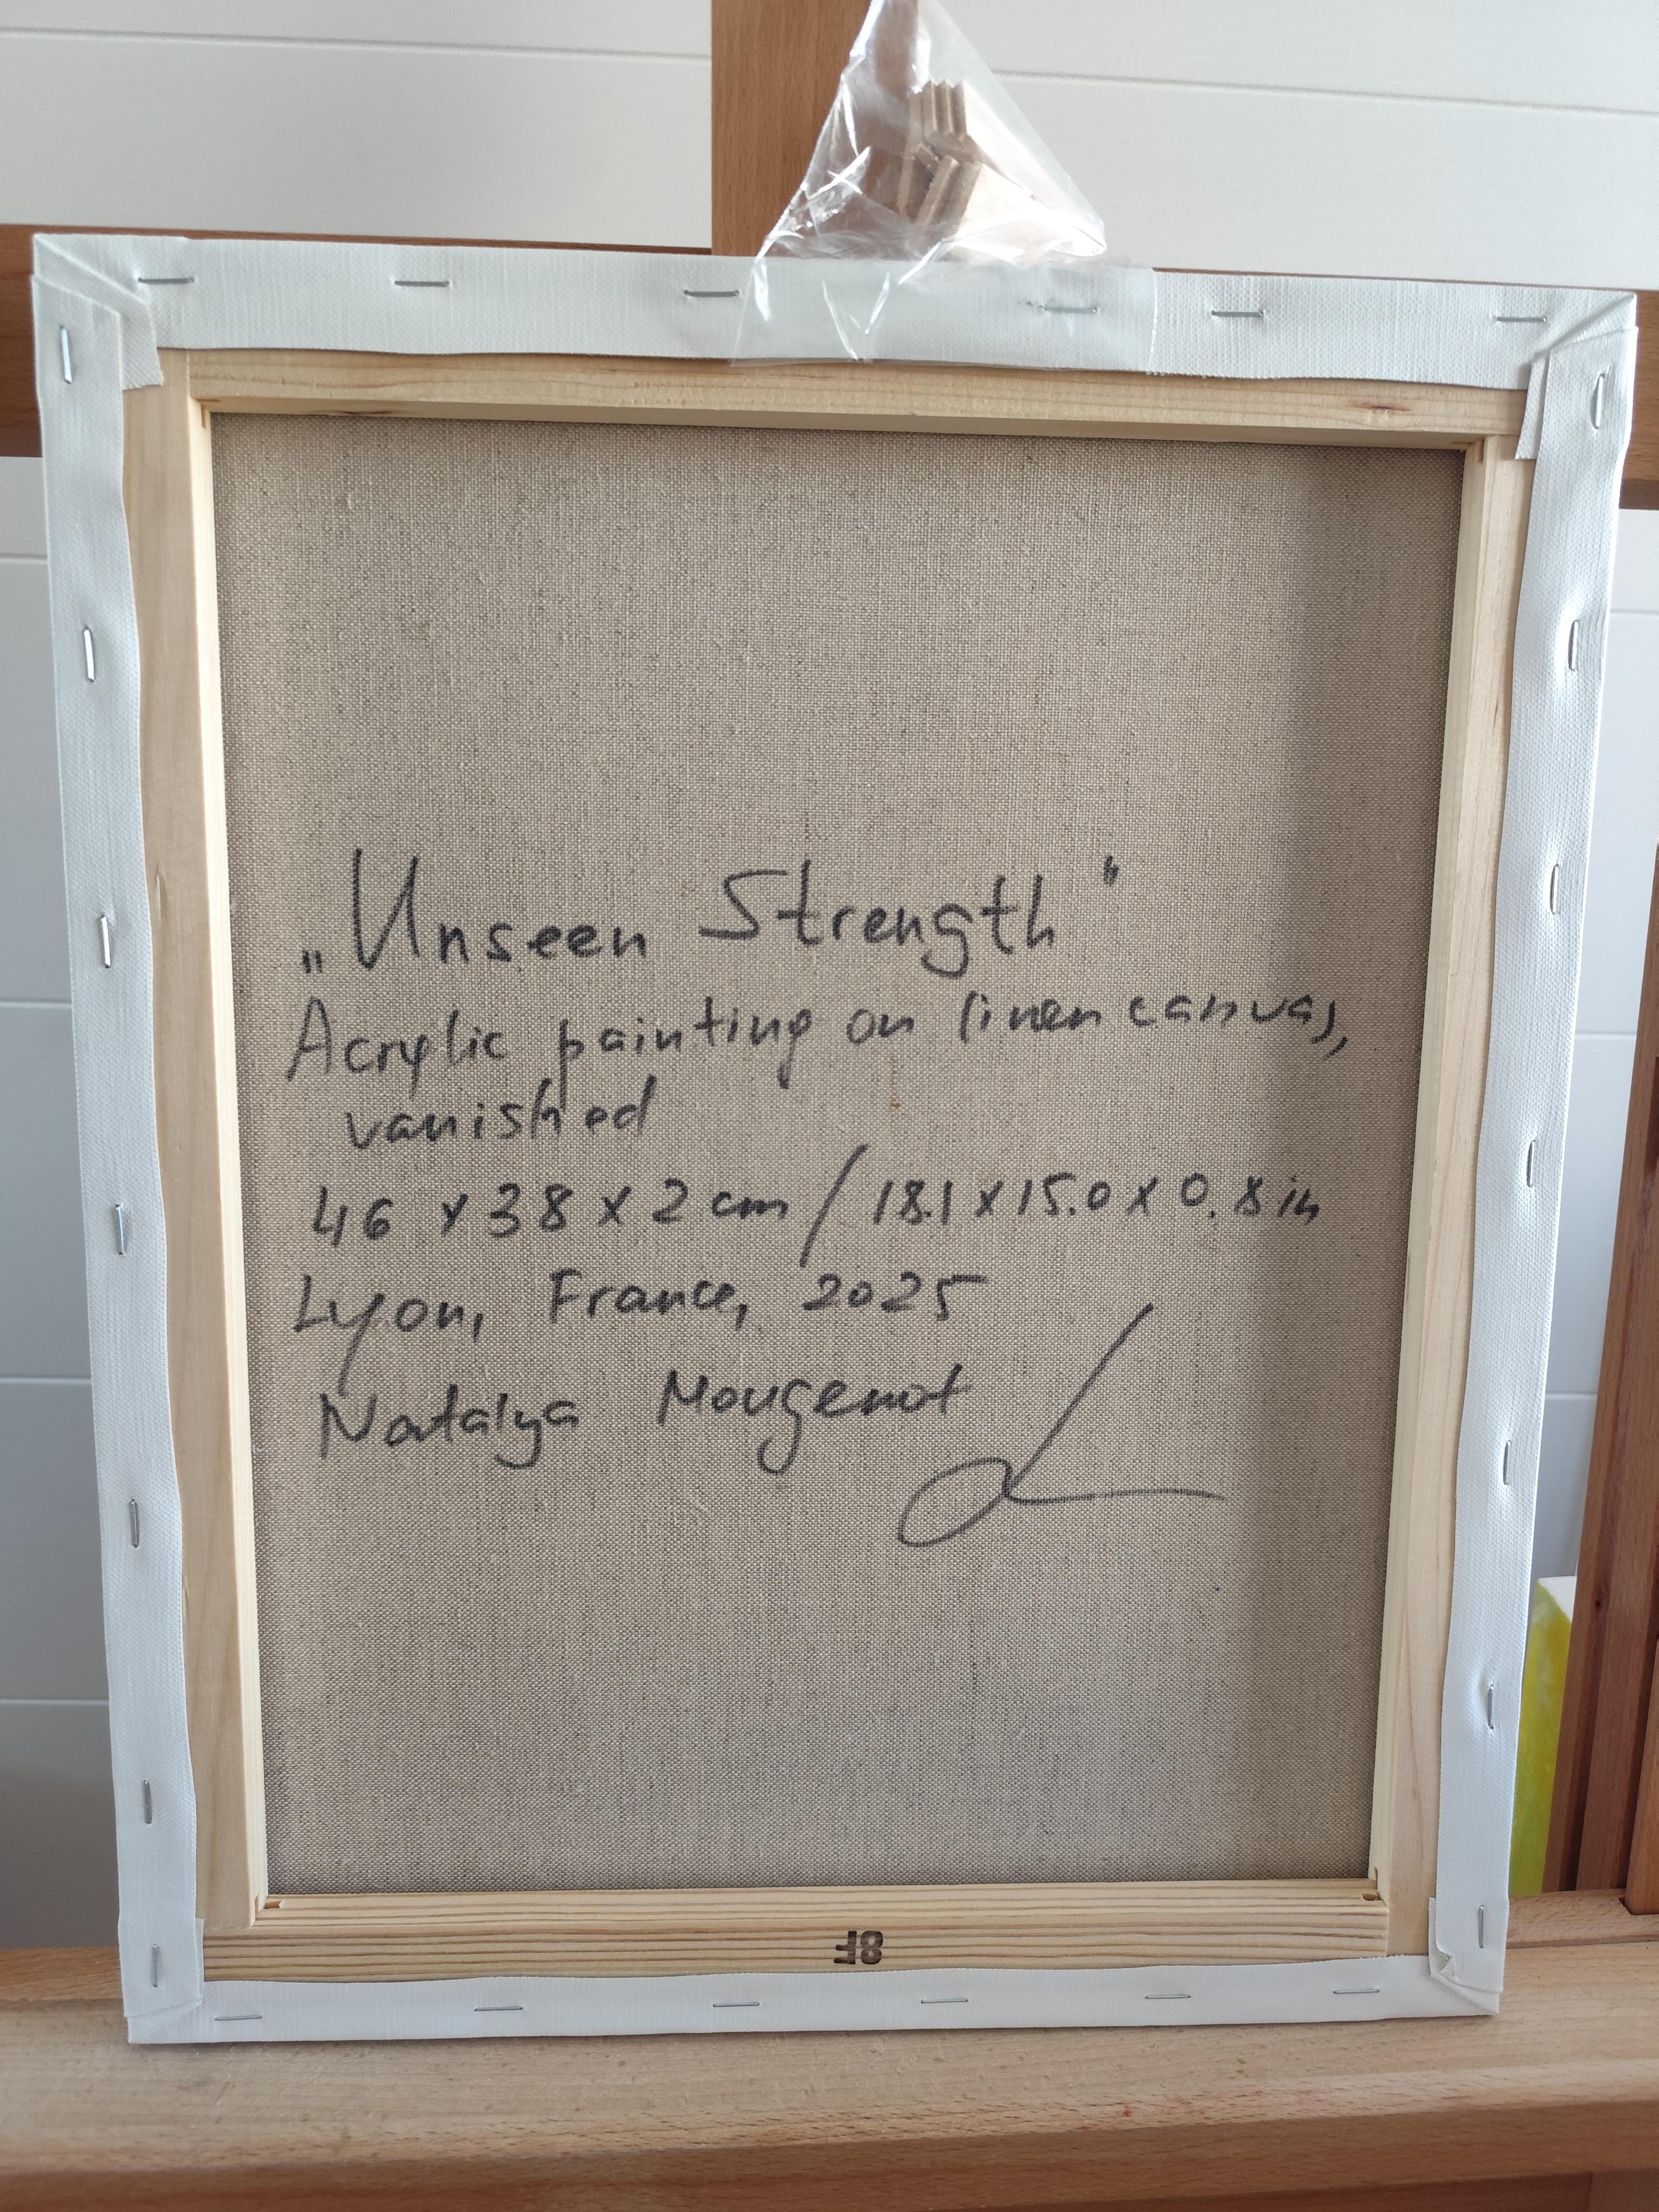 „Unseen Strength“
Acrylic painting on linen canvas,
vanished
46 x 38 x 2 cm / 18.1 x 15.0 x 0.8 in
Lyon, France, 2025
Natalya Mougenot
8F